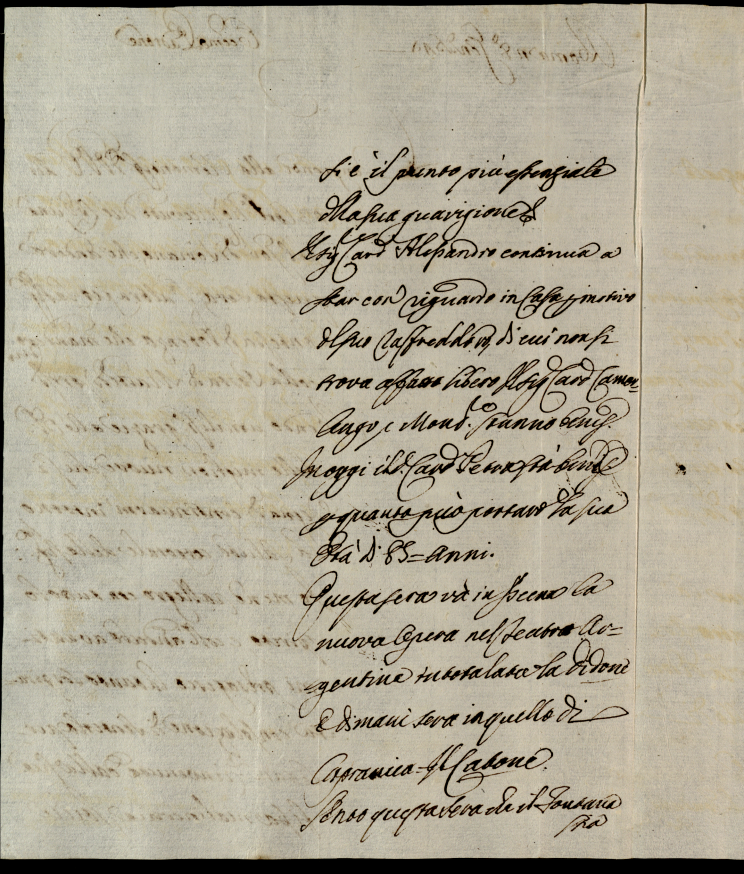 si è il punto più essenziale
della sua guarigione
Il Sig.r Card. Alessandro continua a
star con riguardo in Casa p motivo
del suo raffreddore, di cui non si
trova affatto libero Il Sig.r Card. Camer
lingo, e Mons.r stanno
In oggi il Card. Petra sta
p quanto può portare la sua
Età di 85= anni.
Questa sera và in Scena la
nuova Opera nel Teatro Ar=
gentina intitolata la Didone
E dimani sera in quello di
Capranica= Il Catone.
Sento questa sera che il Fontana
sta